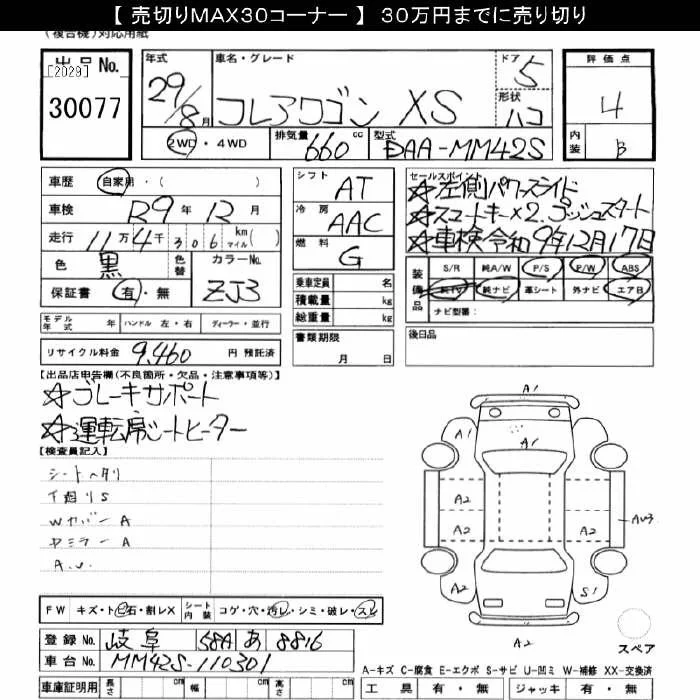 【 売切りMAX30コーナー 】 30万円までに売り切り
(複合機)対応用紙
出品No.
[2029]
30077
年式
29/8月
車名・グレード
フレアワゴン XS
ドア
5
形状
ハコ
2WD・4WD
排気量
660 cc
型式
DAA-MM42S
評価点
4
内装
B
車歴
自家用・( )
車検
R9年12月
走行
11万4千306km
マイル( )
色
黒
色替
カラーNo.
ZJ3
保証書
有・無
シフト
AT
冷房
AAC
燃料
G
乗車定員 名
積載量 kg
総重量 kg
セールスポイント
☆左側パワースライド
☆スマートキー×2.プッシュスタート
☆車検令和9年12月17日
装備品
S/R 純A/W P/S P/W ABS
純TV 純ナビ 革シート 外ナビ エアB
ナビ型番:
モデル年式 年 ハンドル 左・右 ディーラー・並行
書類期限
月 日
後日品
リサイクル料金 9,460 円 預託済
【出品店申告欄(不良箇所・欠品・注意事項等)】
☆ブレーキサポート
☆運転席シートヒーター
【検査員記入】
シートヘタリ
下廻りS
Wカバー A
ヤミラー A
A.U.
A1
A1
A1
A2
A2
A2
A2
AU3
A2
S1
A2
FW キズ・ト石・割レX
シート内装 コゲ・穴・汚レ・シミ・破レ・スレ
登録No. 岐阜 58A あ 8816
車台No. MM42S-110301
スペア
A-キズ C-腐食 E-エクボ S-サビ U-凹ミ W-補修 XX-交換済
車庫証明用 長さ cm 幅 cm 高さ cm
工具 有・無 ジャッキ 有・無